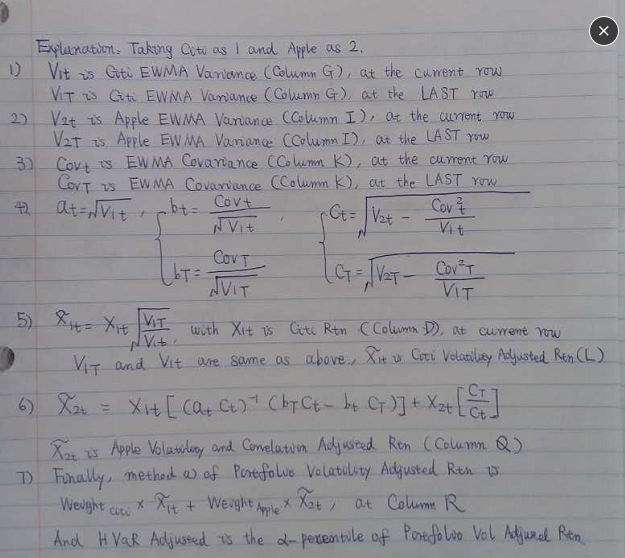 Explanation. Taking Citi as 1 and Apple as 2.
1) V1t is Citi EWMA Variance (Column G), at the current row
V1T is Citi EWMA Variance (Column G), at the LAST row
2) V2t is Apple EWMA Variance (Column I), at the current row
V2T is Apple EWMA Variance (Column I), at the LAST row
3) Covt is EWMA Covariance (Column K), at the current row
CovT is EWMA Covariance (Column K), at the LAST row
4) at = √V1t , { bt = Covt / √V1t , { Ct = √(V2t − Cov²t / V1t)
bT = CovT / √V1T CT = √(V2T − Cov²T / V1T)
5) X̃1t = X1t √(V1T / V1t), with X1t is Citi Rtn (Column D), at current row
V1T and V1t are same as above, X̃1t is Citi Volatility Adjusted Rtn (L)
6) X̃2t = X1t [ (at Ct)⁻¹ (bT Ct − bt CT) ] + X2t [CT / Ct]
X̃2t is Apple Volatility and Correlation Adjusted Rtn (Column Q)
7) Finally, method a) of Portfolio Volatility Adjusted Rtn is
Weight Citi × X̃1t + Weight Apple × X̃2t , at Column R
And HVaR Adjusted is the α-percentile of Portfolio Vol Adjusted Rtn.